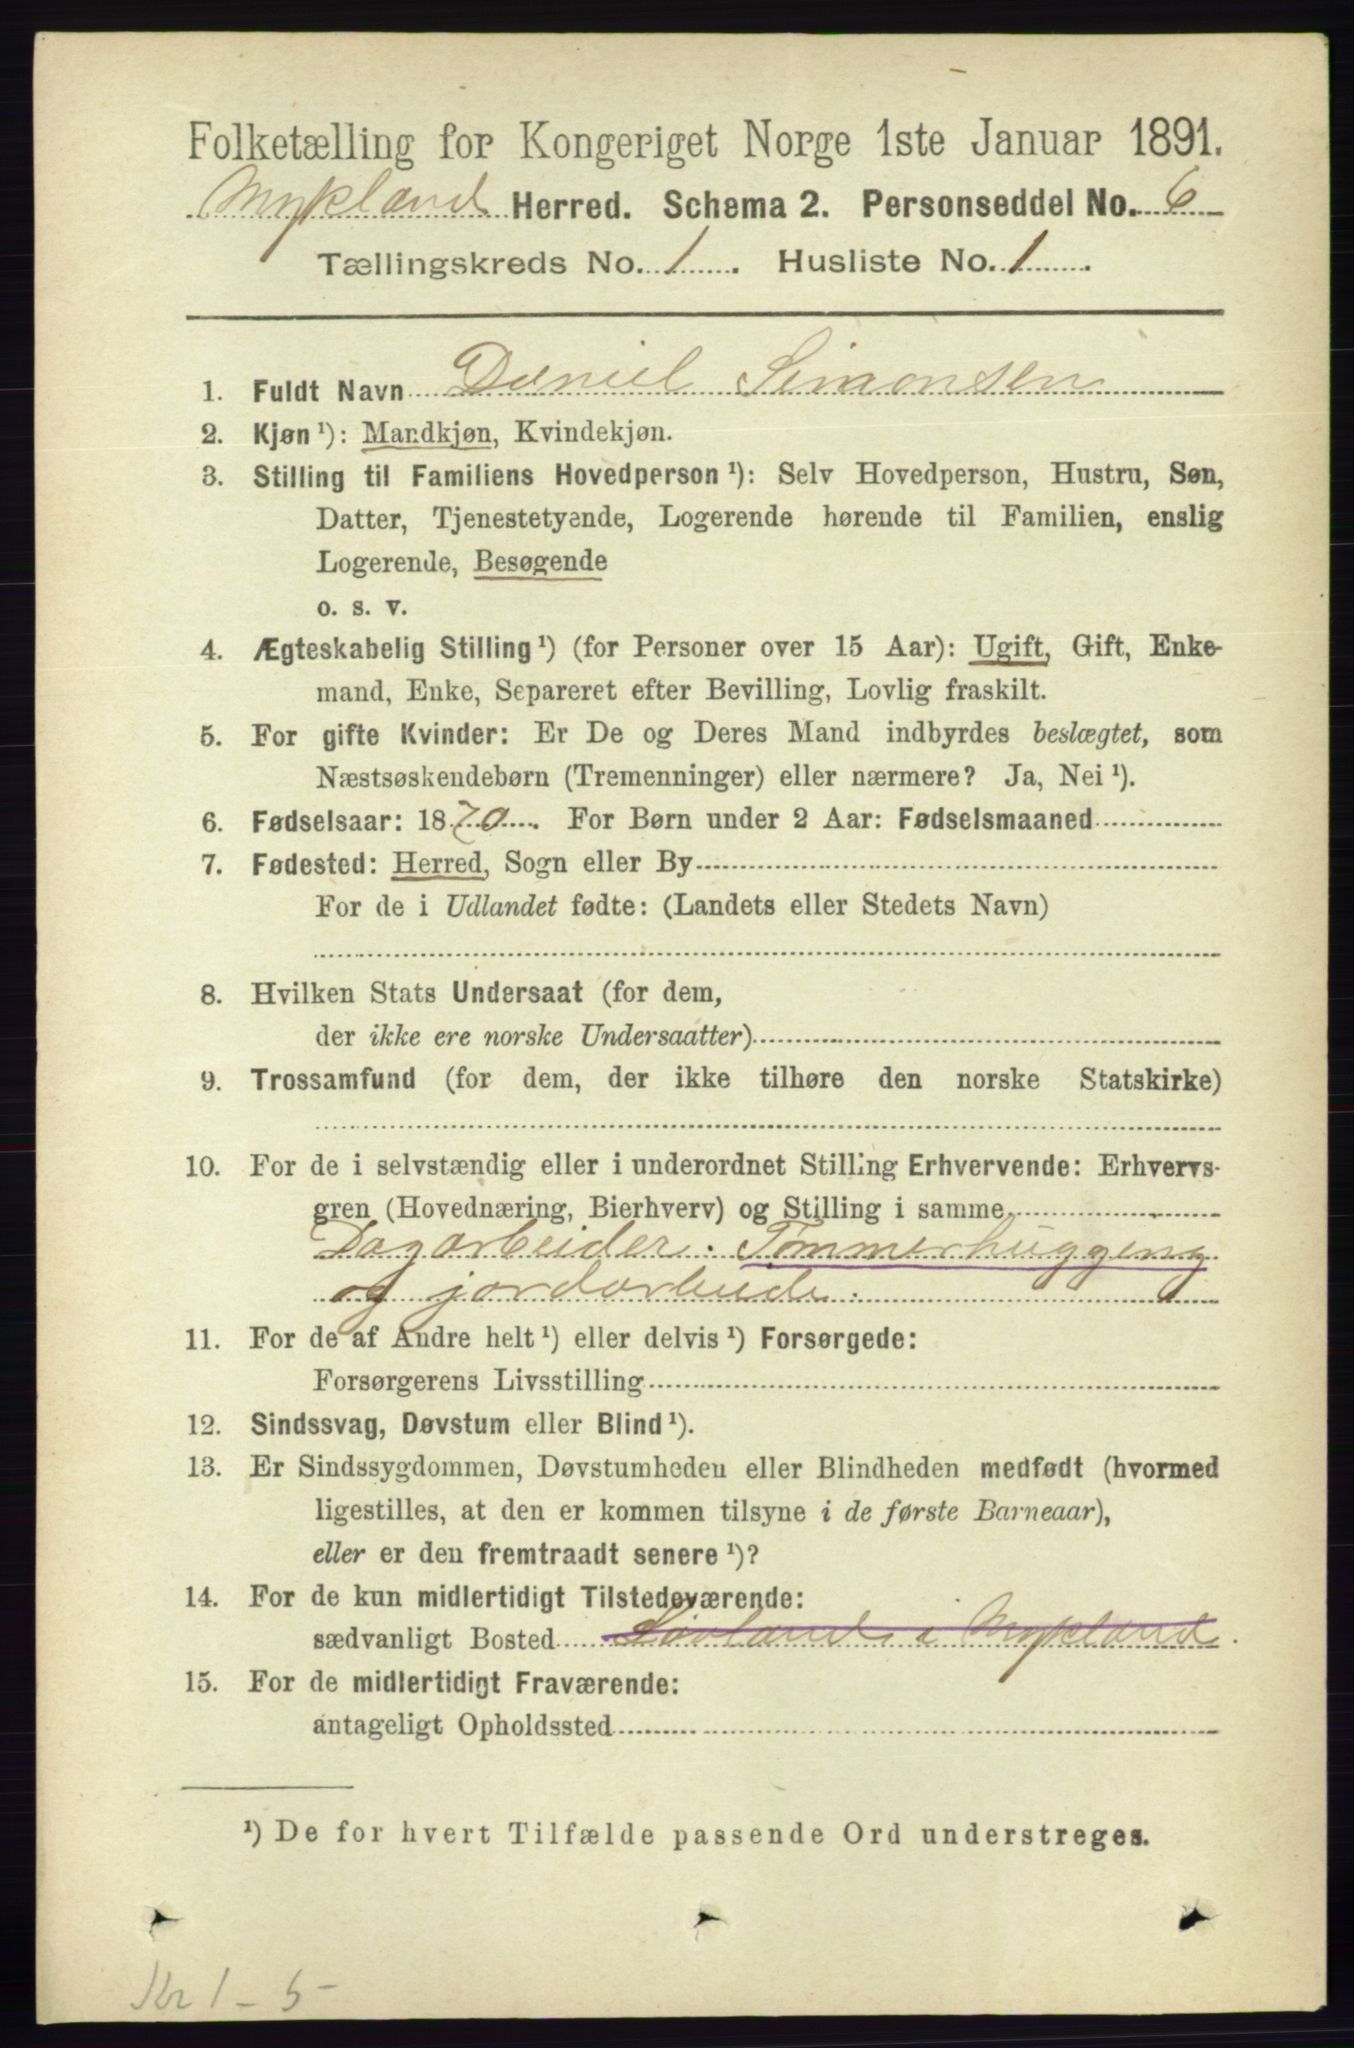 Folketælling for Kongeriget Norge 1ste Januar 1891.
Mykland Herred. Schema 2. Personseddel No. 6
Tællingskreds No. 1. Husliste No. 1.
1. Fuldt Navn Daniel Simonsen
2. Kjøn ¹): Mandkjøn, Kvindekjøn.
3. Stilling til Familiens Hovedperson ¹): Selv Hovedperson, Hustru, Søn,
Datter, Tjenestetyende, Logerende hørende til Familien, enslig
Logerende, Besøgende
o. s. v.
4. Ægteskabelig Stilling ¹) (for Personer over 15 Aar): Ugift, Gift, Enke-
mand, Enke, Separeret efter Bevilling, Lovlig fraskilt.
5. For gifte Kvinder: Er De og Deres Mand indbyrdes beslægtet, som
Næstsøskendebørn (Tremenninger) eller nærmere? Ja, Nei ¹).
6. Fødselsaar: 1870. For Børn under 2 Aar: Fødselsmaaned
7. Fødested: Herred, Sogn eller By
For de i Udlandet fødte: (Landets eller Stedets Navn)
8. Hvilken Stats Undersaat (for dem,
der ikke ere norske Undersaatter)
9. Trossamfund (for dem, der ikke tilhøre den norske Statskirke)
10. For de i selvstændig eller i underordnet Stilling Erhvervende: Erhvervs-
gren (Hovednæring, Bierhverv) og Stilling i samme
Dagarbeider. Tømmerhuggeng
og jordarbeide.
11. For de af Andre helt ¹) eller delvis ¹) Forsørgede:
Forsørgerens Livsstilling
12. Sindssvag, Døvstum eller Blind ¹).
13. Er Sindssygdommen, Døvstumheden eller Blindheden medfødt (hvormed
ligestilles, at den er kommen tilsyne i de første Barneaar),
eller er den fremtraadt senere ¹)?
14. For de kun midlertidigt Tilstedeværende:
sædvanligt Bosted Løvland i Mykland.
15. For de midlertidigt Fraværende:
antageligt Opholdssted
¹) De for hvert Tilfælde passende Ord understreges.
Kr 1 - 5 -